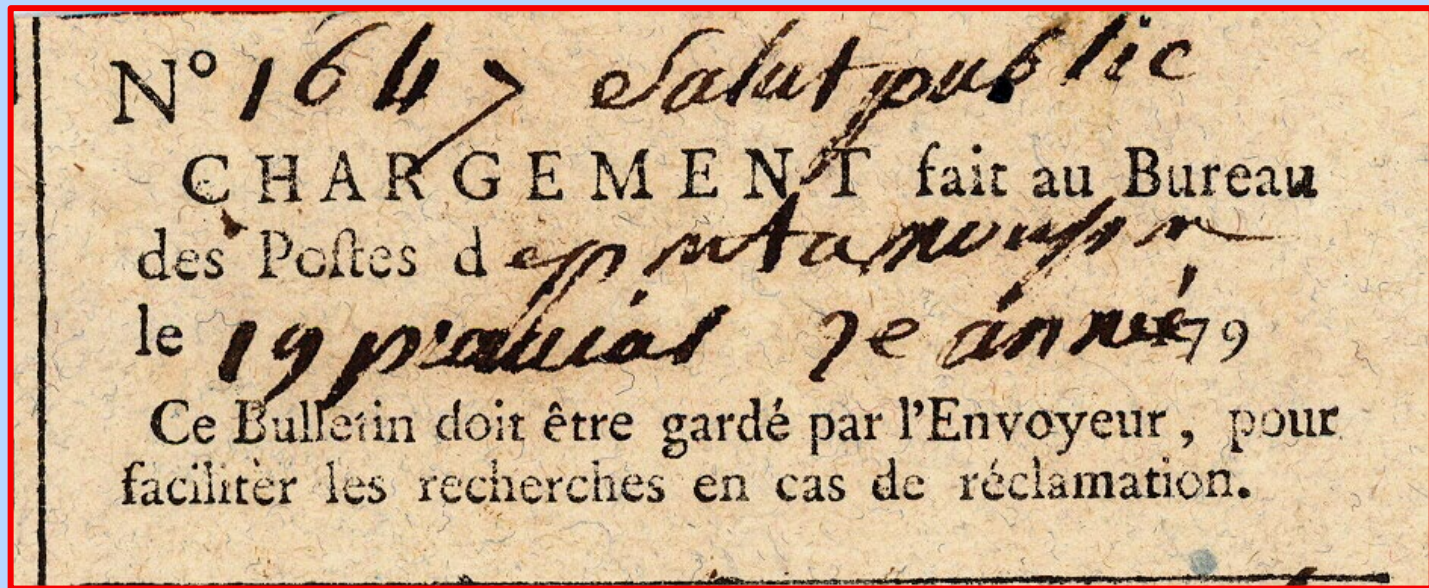 N° 1647 Salut public
CHARGEMENT fait au Bureau
des Poſtes de pontamousson
le 19 prairial 2e année 179
Ce Bulletin doit être gardé par l'Envoyeur, pour
faciliter les recherches en cas de réclamation.